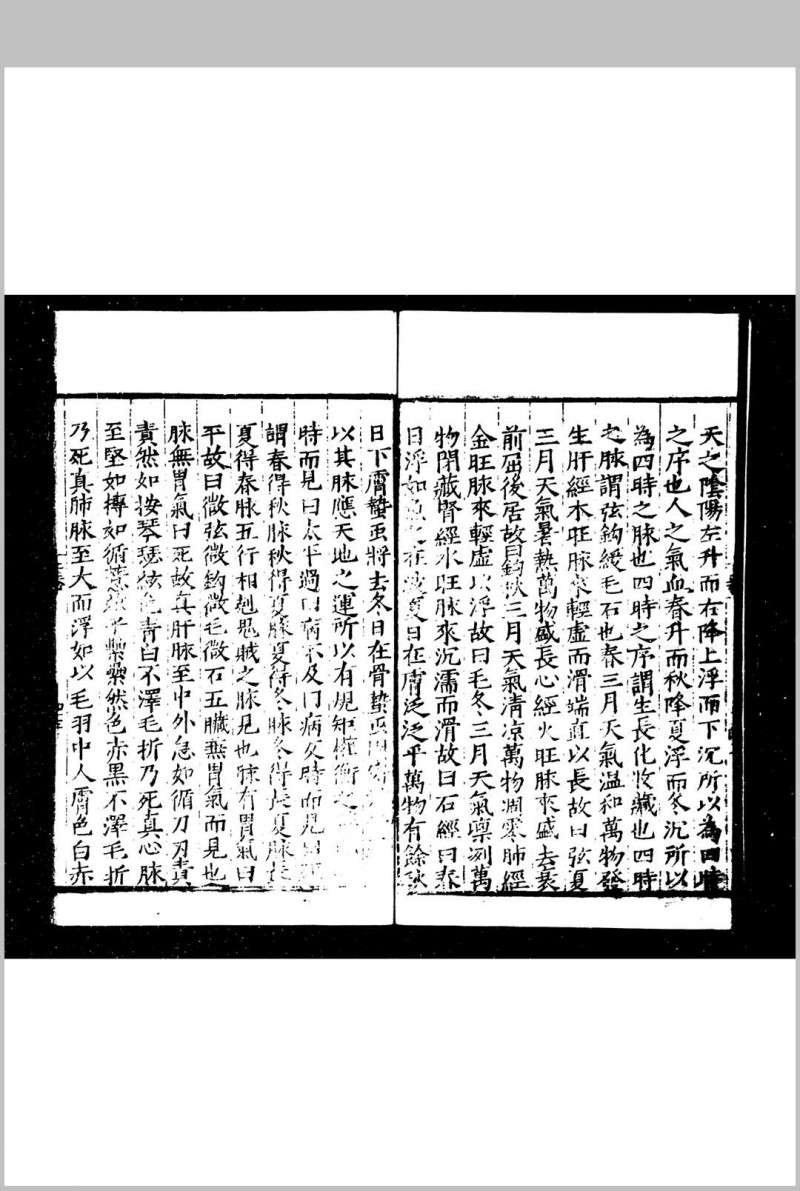 天之陰陽左升而右降上浮而下沉所以為四時
之序也人之氣血春升而秋降夏浮而冬沉所以
為四時之脉也四時之序謂生長化收藏也四時
之脉謂弦鈎緩毛石也春三月天氣温和萬物發
生肝經木旺脉來輕虛而滑端直以長故曰弦夏
三月天氣暑熱萬物盛長心經火旺脉來盛去衰
前屈後居故曰鈎秋三月天氣清凉萬物凋零肺經
金旺脉來輕虛以浮故曰毛冬三月天氣凛冽萬
物閉藏腎經水旺脉來沉濡而滑故曰石經曰春
日浮如魚之在波夏日在膚泛泛乎萬物有餘秋
日下膚蟄虫將去冬日在骨蟄虫
以其脉應天地之運所以有規矩權衡之
時而見曰太平過曰病不及曰病反時而見曰
謂春得秋脉秋得夏脉夏得冬脉冬得長夏脉長
夏得春脉五行相剋鬼賊之脉見也脉有胃氣曰
平故曰微弦微鈎微毛微石五臟無胃氣而見也
脉無胃氣曰死故真肝脉至中外急如循刀刃責
責然如按琴瑟弦色青白不澤毛折乃死真心脉
至堅如摶如循薏苡子纍纍然色赤黒不澤毛折
乃死真肺脉至大而浮如以毛羽中人膚色白赤